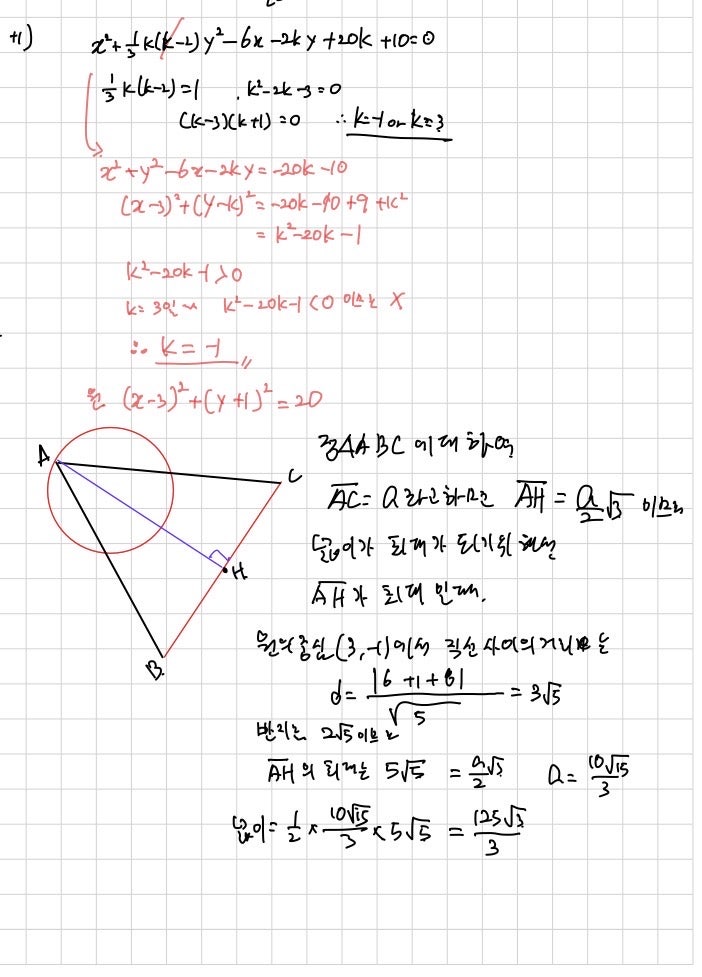 +1) x²+⅓k(k-2)y²-6x-2ky+20k+10=0
⅓k(k-2)=1 , k²-2k-3=0
(k-3)(k+1)=0 ∴ k=-1 or k=3
x²+y²-6x-2ky=-20k-10
(x-3)²+(y-k)²=-20k-10+9+k²
=k²-20k-1
k²-20k-1>0
k=3일 때 k²-20k-1<0 이므로 X
∴ k=-1
원 (x-3)²+(y+1)²=20
A
C
H
B
정△ABC에 대하여
AC=a라고 하면 AH=a/2√3 이므로
넓이가 최대가 되기 위해선
AH가 최대 일때.
원의 중심(3,-1)에서 직선 사이의 거리는
d=|6+1+8|/√5=3√5
반지름 2√5이므로
AH의 최대는 5√5 =a√3/2 a=10√15/3
넓이=1/2×10√15/3×5√5=125√3/3